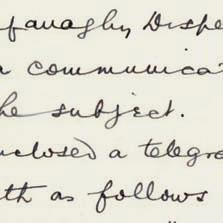 fanaghy Dispe
a communicat
he subject.
nclosed a telegra
th as follows